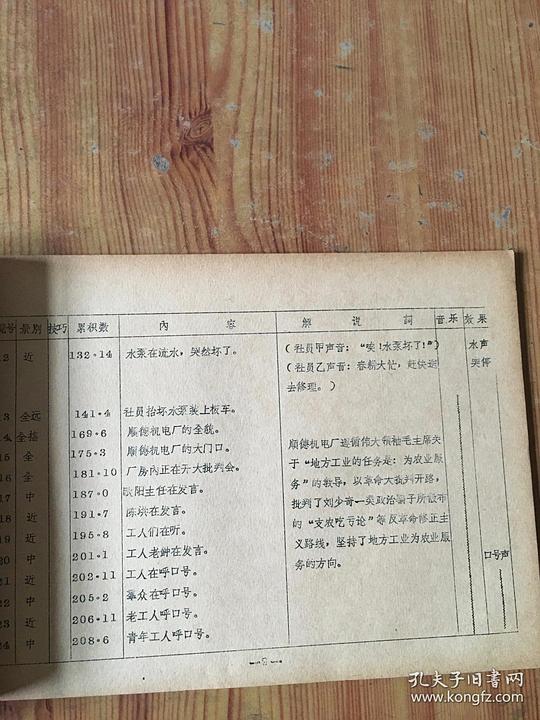 号 景别 技巧 累积数 內 容 解 说 词 音乐 效果
2 近 132·14 水泵在流水，突然坏了。 （社员甲声音：“唉！水泵坏了！”） 水声
（社员乙声音：春耕大忙，赶快送 突停
去修理。）
3 全远 141·4 社员抬坏水泵装上板车。
4 全摇 169·6 顺德机电厂的全貌。
15 全 175·3 顺德机电厂的大门口。 顺德机电厂遵循伟大领袖毛主席关
16 全 181·10 厂房内正在开大批判会。 于“地方工业的任务是：为农业服
17 中 187·0 欧阳主任在发言。 务”的教导，以革命大批判开路，
18 近 191·7 陈 在发言。 批判了刘少奇一类政治骗子所散布
19 近 195·8 工人们在听。 的“支农吃亏论”等反革命修正主
20 中 201·1 工人老 在发言。 义路线，坚持了地方工业为农业服
21 近 202·11 工人在呼口号。 务的方向。 口号声
22 中 205·2 羣众在呼口号。
23 近 206·11 老工人呼口号。
24 中 208·6 青年工人呼口号。
孔夫子旧书网
www.kongfz.com